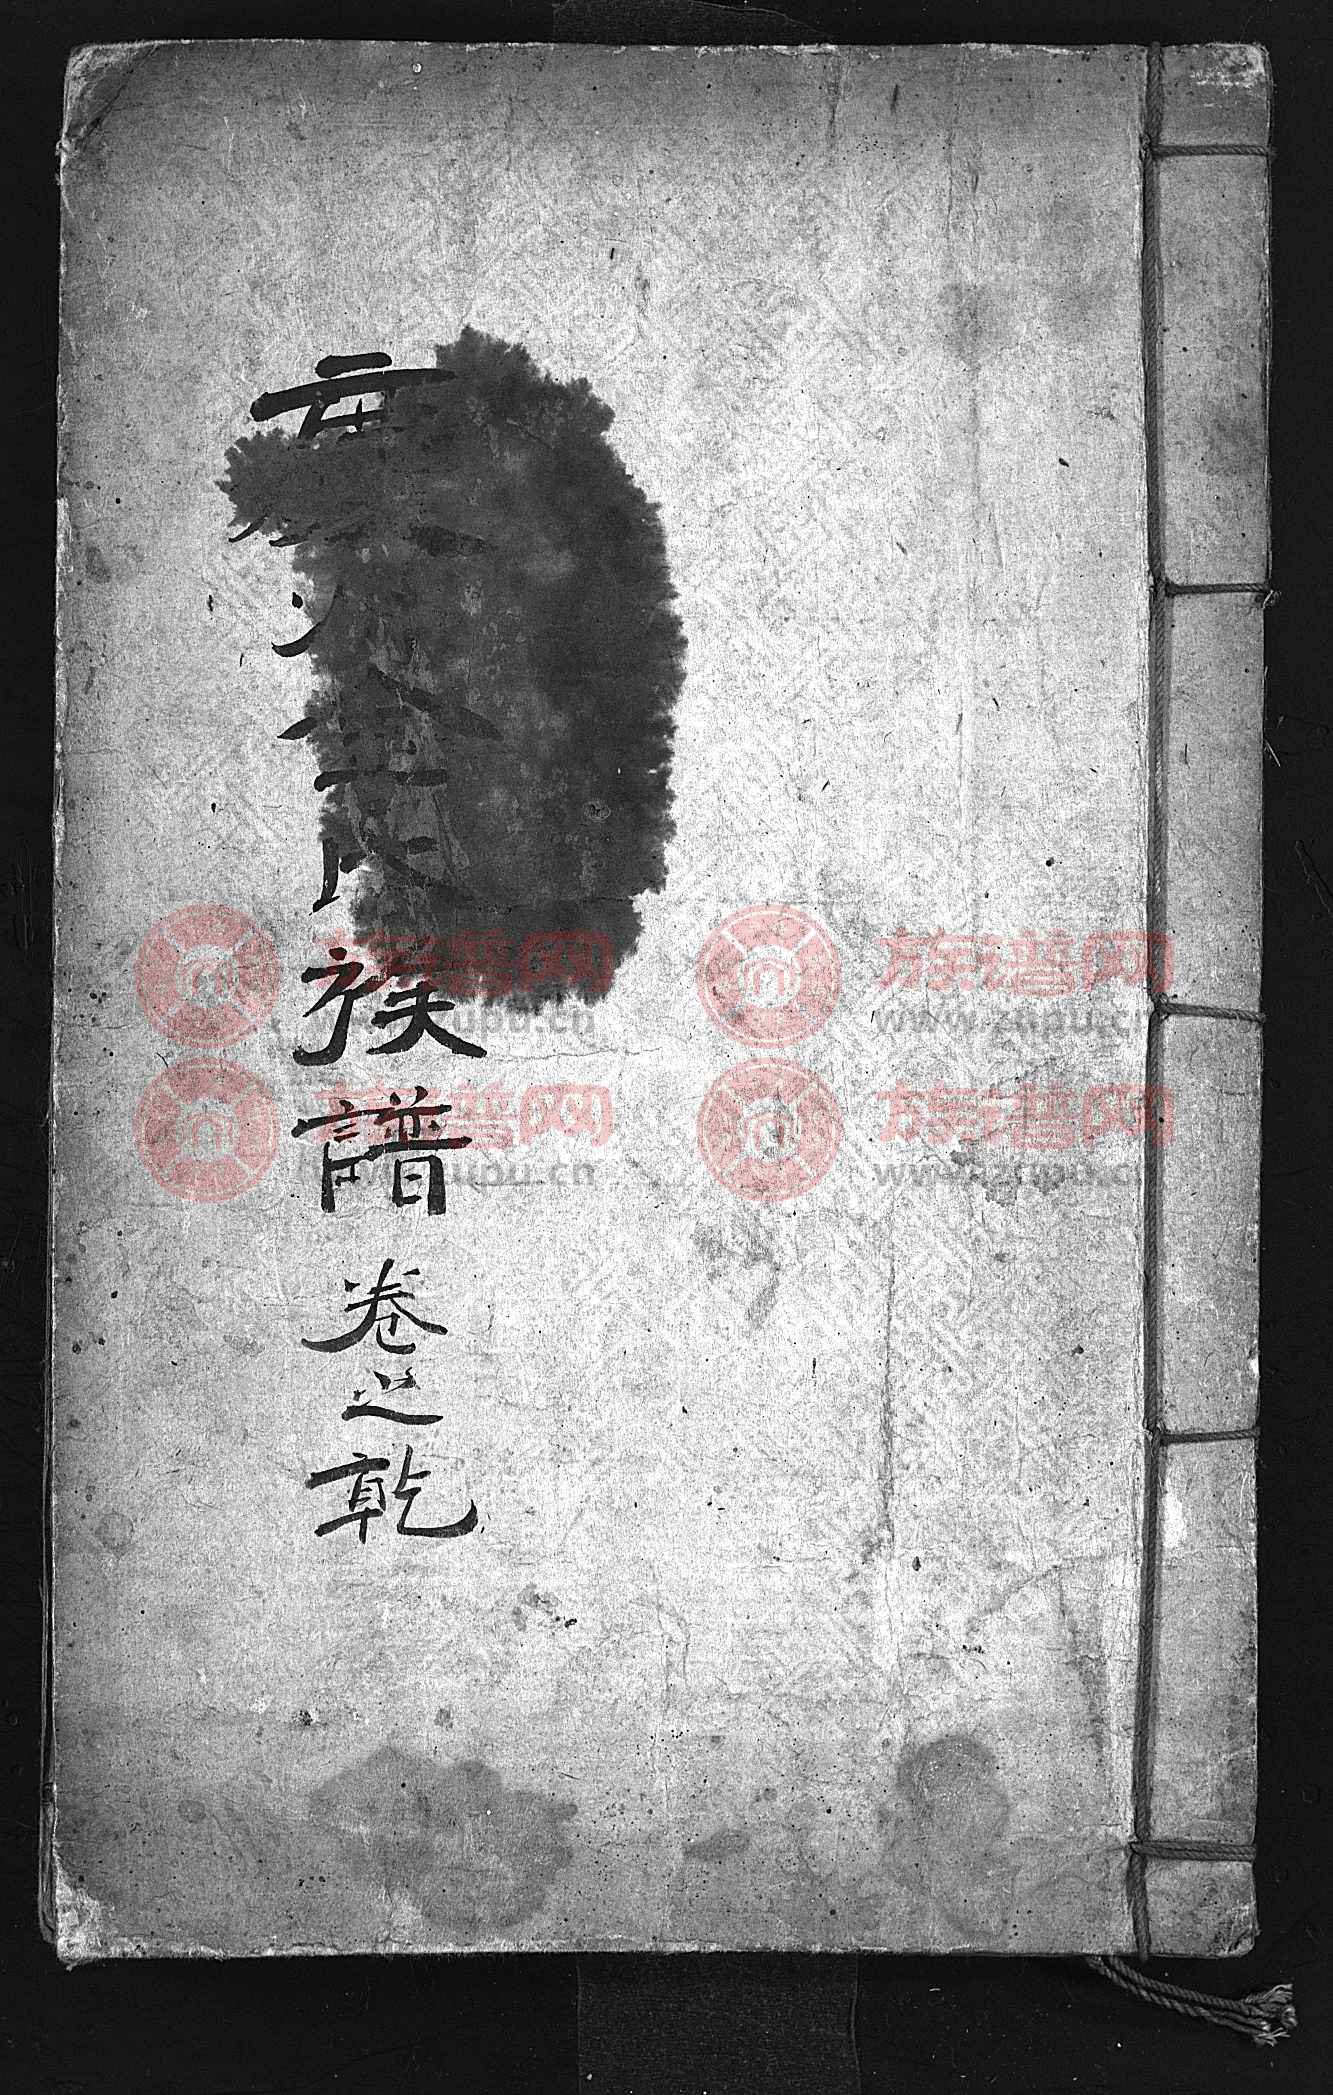 慶州金氏族譜 卷之乾
族谱网 族谱网
www.zupu.cn www.zupu.cn
族谱网 族谱网
www.zupu.cn www.zupu.cn